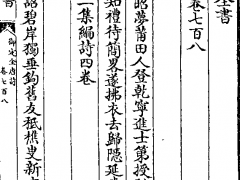 全書
卷七百八
昭夢莆田人登乾寧進士第授
知禮待簡畧遂拂衣去歸隱延
一集編詩四卷
詔碧岸獨垂鈎舊友秪樵叟新
御定全唐詩
卷七百八